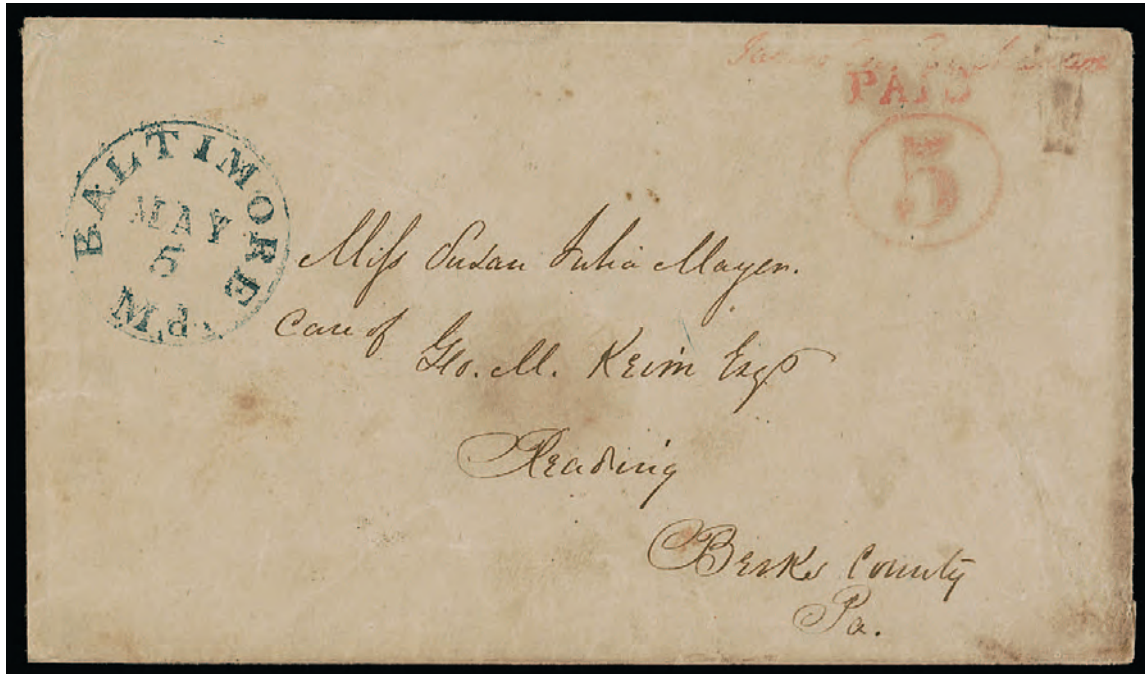 James M. Buchanan
PAID
5
BALTIMORE
MAY
5
Md.
Miss Susan Julia Mayer.
Care of
Geo. M. Keim Esq
Reading
Berks County
Pa.